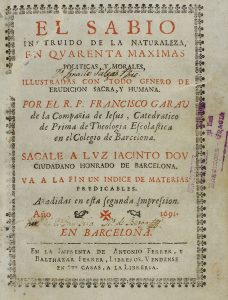 EL SABIO
INSTRUIDO DE LA NATURALEZA,
EN QVARENTA MAXIMAS
POLITICAS, Y MORALES,
ILLUSTRADAS CON TODO GENERO DE
ERUDICION SACRA, Y HUMANA.
POR EL R. P. FRANCISCO GARAU
de la Compañia de Jesus, Catedratico
de Prima de Theologia Escolastica
en el Colegio de Barcelona.
SACALE A LUZ JACINTO DOU
CIUDADANO HONRADO DE BARCELONA.
VA A LA FIN UN INDICE DE MATERIAS
PREDICABLES.
Añadidas en esta segunda Impresion.
Año 1691.
EN BARCELONA.
EN LA IMPRENTA DE ANTONIO FERRER, Y
BALTHAZAR FERRER, LIBREROS, VENDENSE
EN SUS CASAS, A LA LIBRERIA.